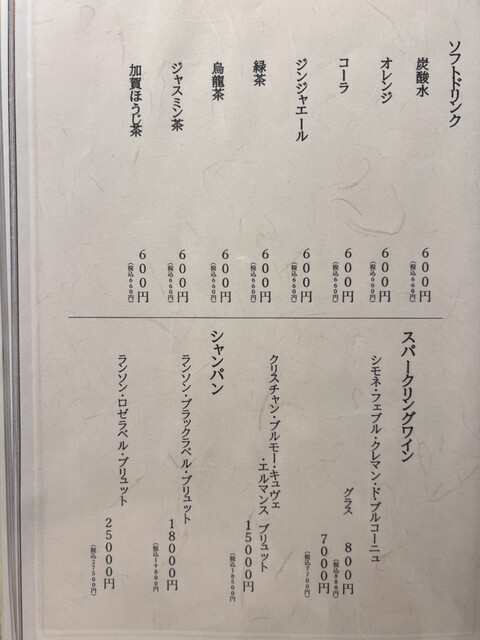 ソフトドリンク
炭酸水 ６００円
(税込６６０円)
オレンジ ６００円
(税込６６０円)
コーラ ６００円
(税込６６０円)
ジンジャエール ６００円
(税込６６０円)
緑茶 ６００円
(税込６６０円)
烏龍茶 ６００円
(税込６６０円)
ジャスミン茶 ６００円
(税込６６０円)
加賀ほうじ茶 ６００円
(税込６６０円)
スパークリングワイン
シモネ・フェブル・クレマン・ド・ブルコーニュ
グラス ８００円
(税込８８０円)
７０００円
(税込７７００円)
クリスチャン・ブルモー・キュヴェ
・エルマンス ブリュット
１５０００円
シャンパン
ランソン・ブラックラベル・ブリュット
１８０００円
(税込１９８００円)
ランソン・ロゼラベル・ブリュット
２５０００円
(税込２７５００円)